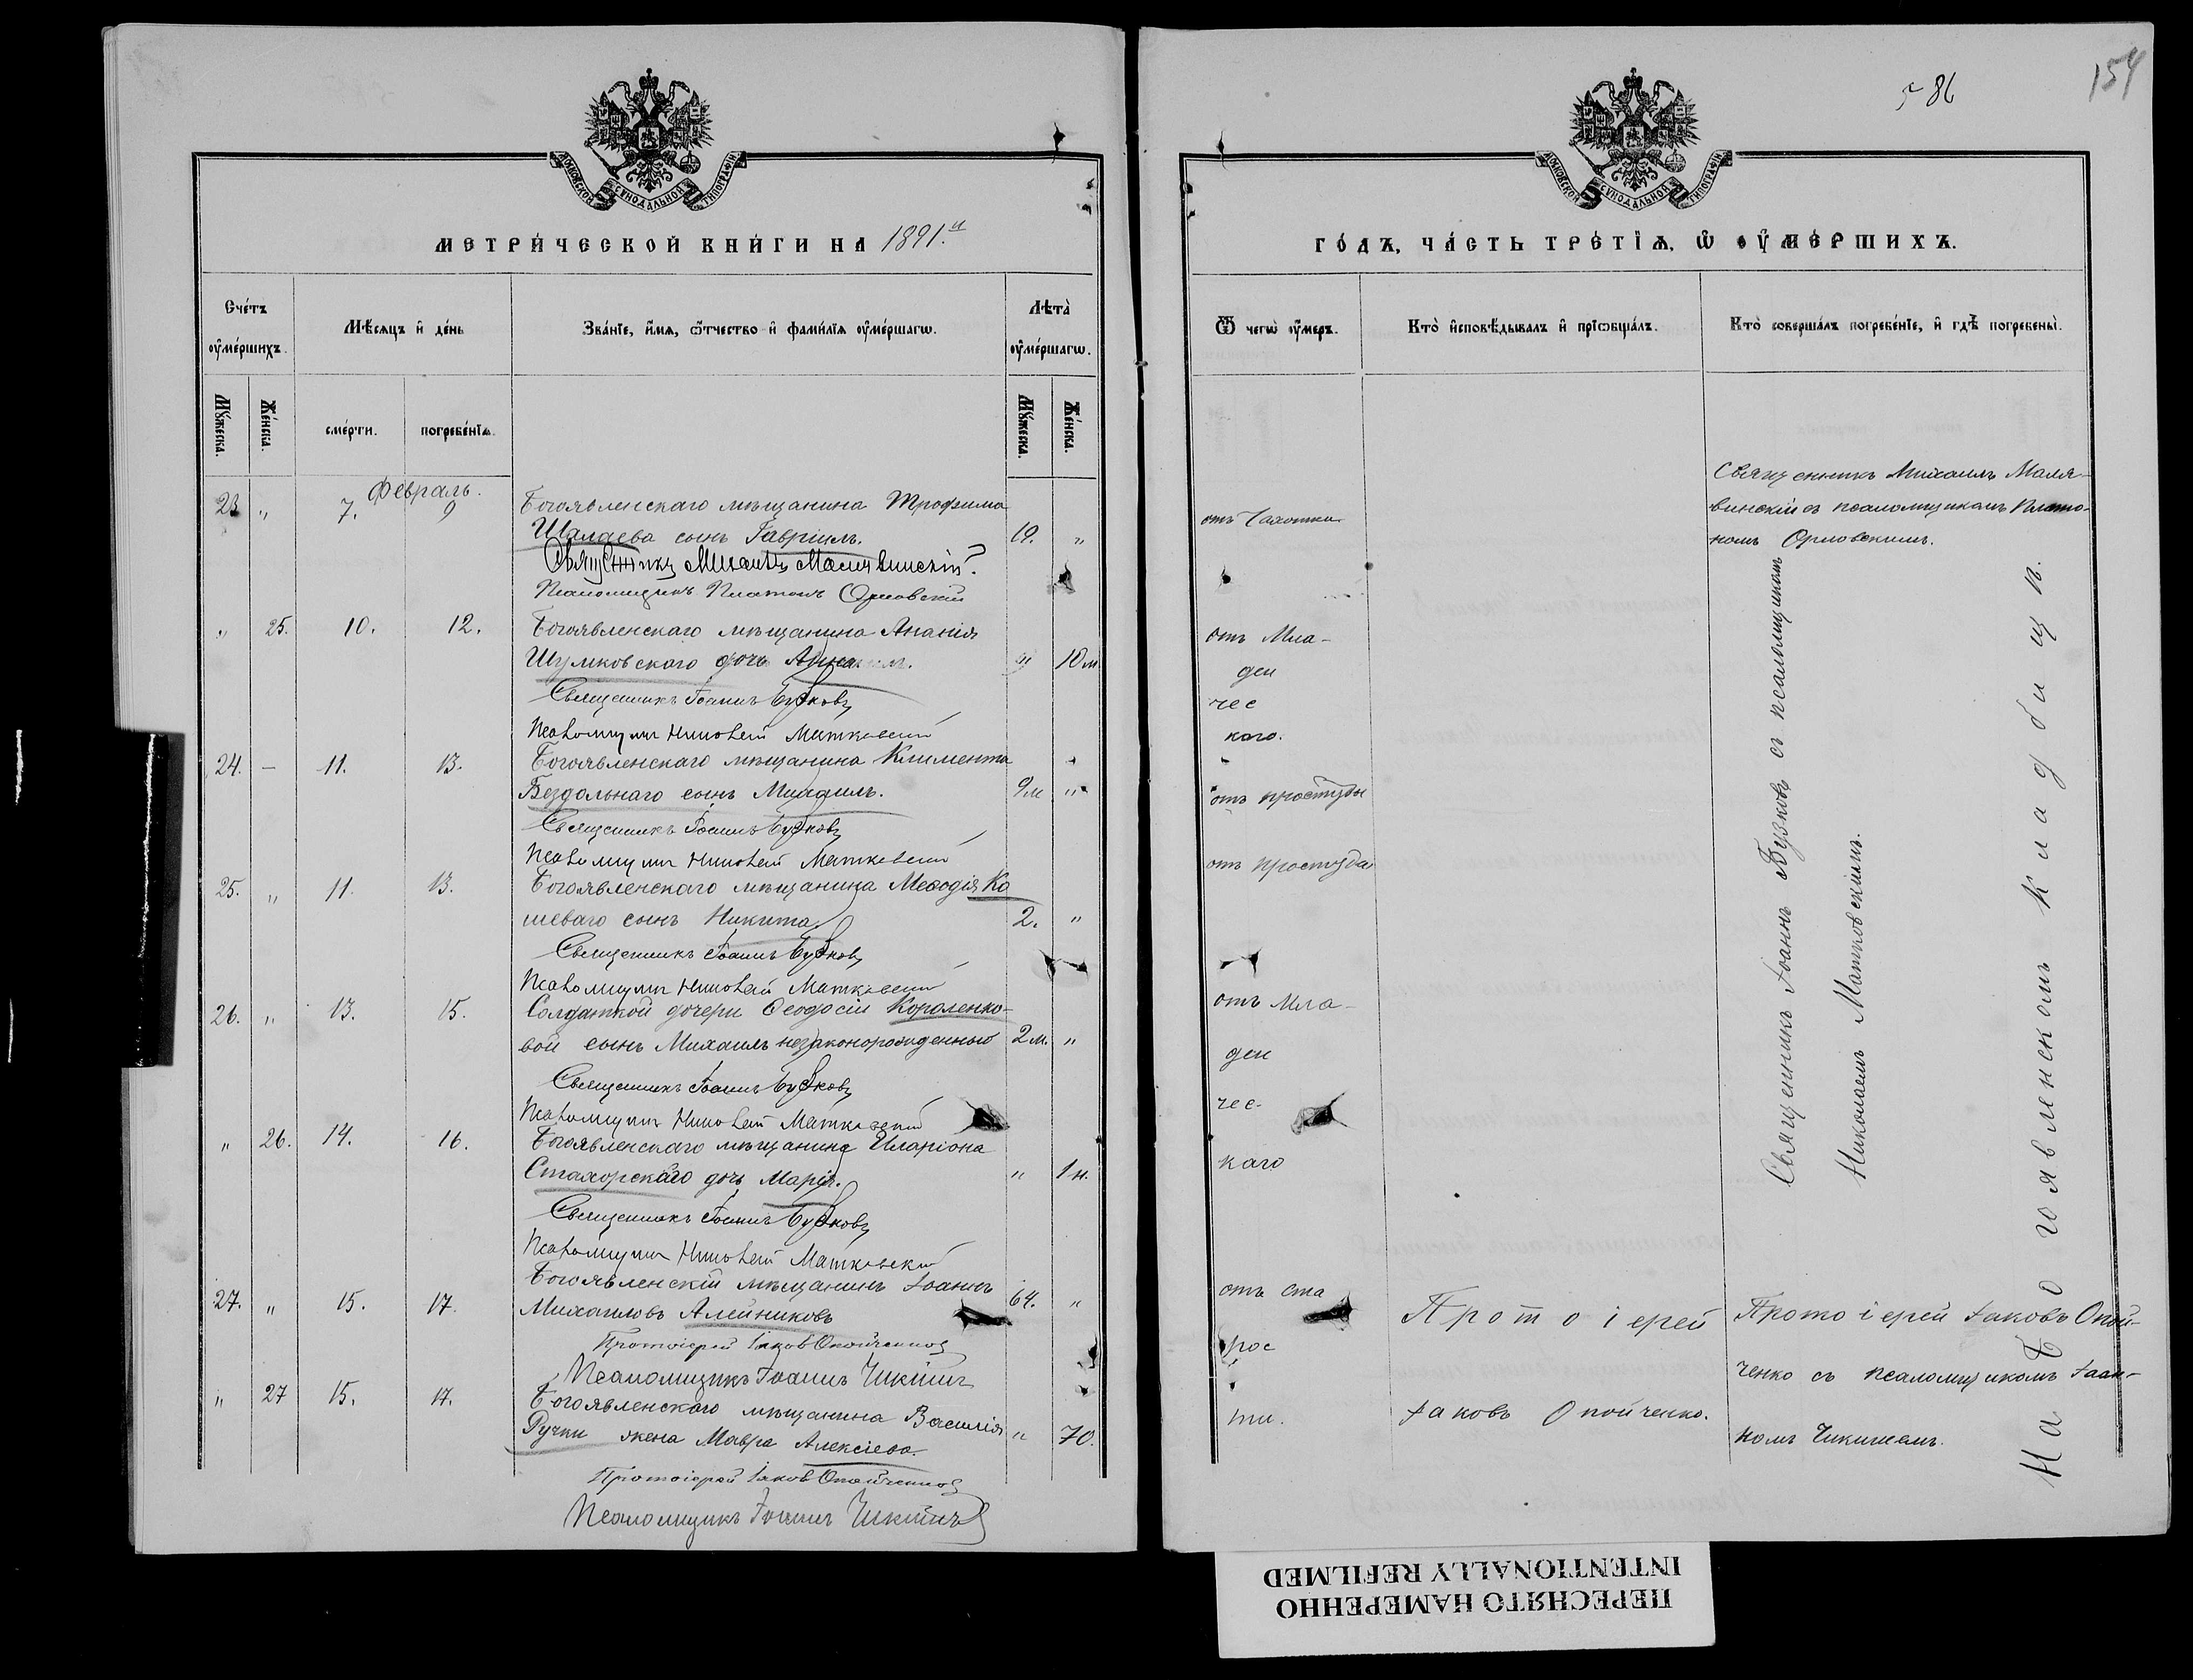 МОСКОВСКОЙ СУНОДАЛЬНОЙ ТИПОГРАФІИ
МЕТРИЧЕСКОЙ КНИГИ НА 1891.й
Счетъ оумершихъ.
Мѣсяцъ и день
Званіе, имя, отчество и фамилія оумершагω.
Лѣта оумершагω.
Мужеска.
Женска.
смерти.
погребенія.
Мужеска.
Женска.
Февраль.
23 " 7. 9 Богоявленскаго мѣщанина Трофима
Шалаева сынъ Гавріилъ. 19. "
Священникъ Михаилъ Малявинскій
Псаломщикъ Платонъ Орловскій
" 25. 10. 12. Богоявленскаго мѣщанина Ананія
Шумковскаго дочь Анна. " 10 м
Священникъ Іоаннъ Бузковъ
Псаломщикъ Николай Матковскій
24. — 11. 13. Богоявленскаго мѣщанина Климента
Бездольнаго сынъ Михаилъ. 9м "
Священникъ Іоаннъ Бузковъ
Псаломщикъ Николай Матковскій
25. " 11. 13. Богоявленскаго мѣщанина Меѳодія Ко
шеваго сынъ Никита. 2. "
Священникъ Іоаннъ Бузковъ
Псаломщикъ Николай Матковскій
26. " 13. 15. Солдатской дочери Ѳеодосіи Короленко-
вой сынъ Михаилъ незаконорожденный 2 м. "
Священникъ Іоаннъ Бузковъ
Псаломщикъ Николай Матковскій
" 26. 14. 16. Богоявленскаго мѣщанина Иларіона
Стахорскаго дочь Марія. " 1 н.
Священникъ Іоаннъ Бузковъ
Псаломщикъ Николай Матковскій
27. " 15. 17. Богоявленскій мѣщанинъ Іоаннъ
Михаиловъ Алейниковъ 64. "
Протоіерей Іаковъ Опойченко
Псаломщикъ Іоаннъ Чикинъ
" 27 15. 17. Богоявленскаго мѣщанина Василія
Ручки жена Мавра Алексіева. " 70.
Протоіерей Іаковъ Опойченко
Псаломщикъ Іоаннъ Чикинъ
586
154
МОСКОВСКОЙ СУНОДАЛЬНОЙ ТИПОГРАФІИ
ГОДЪ, ЧАСТЬ ТРЕТІЯ, Ѡ ОУМЕРШИХЪ.
Ѿ чегω оумеръ.
Кто исповѣдывалъ и пріωбщалъ.
Кто совершалъ погребеніе, и гдѣ погребены.
Священникъ Михаилъ Маля-
винскій съ псаломщикомъ Плато-
номъ Орловскимъ.
отъ чахотки
отъ Мла-
ден
чес
каго.
отъ простуды
отъ простуды
отъ мла-
ден
чес-
каго
Священникъ Іоаннъ Бузковъ съ псаломщикомъ
Николаемъ Матковскимъ.
На Богоявленскомъ кладбищѣ.
отъ ста
рос
ти.
Протоіерей
Іаковъ Опойченко.
Протоіерей Іаковъ Опой-
ченко съ псаломщикомъ Іоан-
номъ Чикинымъ.
ПЕРЕСНЯТО НАМЕРЕННО
INTENTIONALLY REFILMED